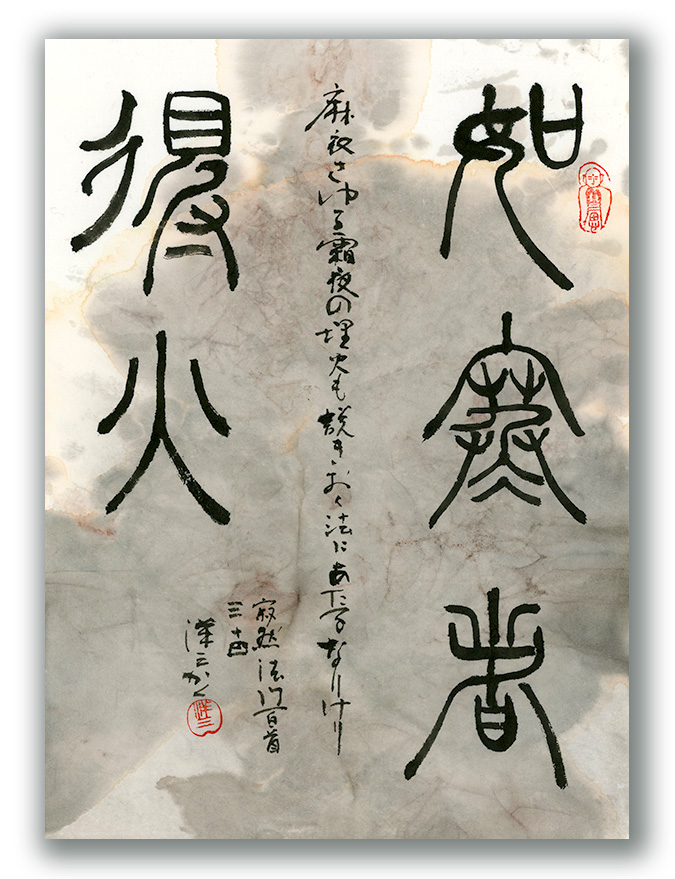 如寒者
得火
麻衣さゆる霜夜の埋火も説きおく法にあたるなりけり
寂然法門百首
三十四
洋三かく
洋三